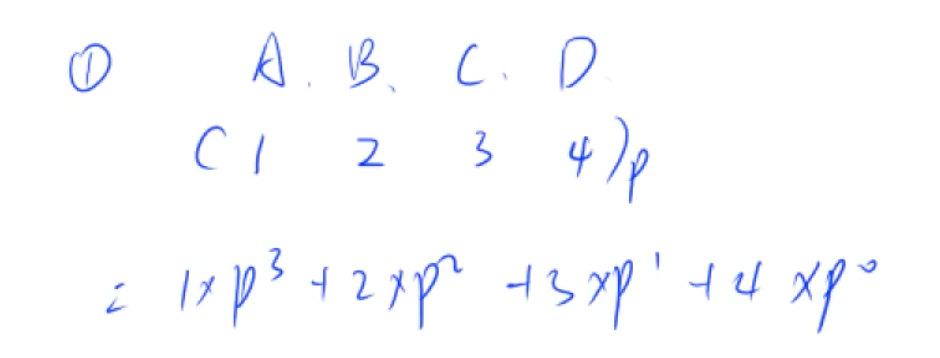 ① A. B、C. D.
(1 2 3 4)p
= 1×p³ + 2×p² + 3×p¹ + 4×p⁰